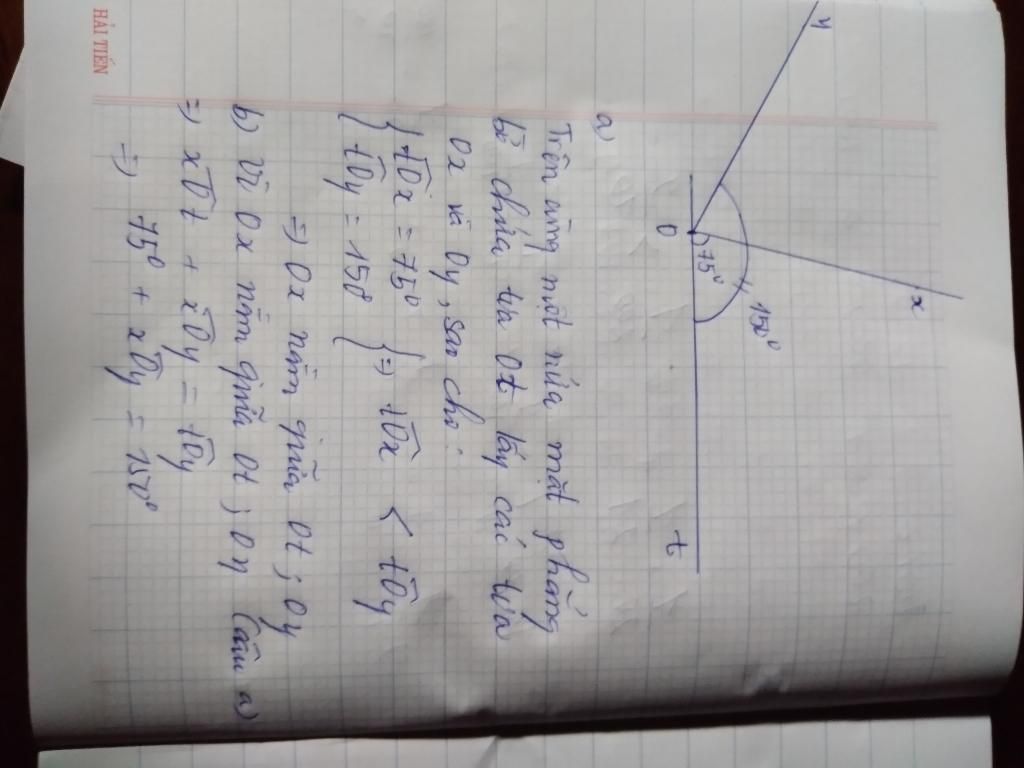 HẢI TIẾN
y
x
150°
75°
O
t
a)
Trên cùng một nửa mặt phẳng
bờ chứa tia Ot lấy các tia
Ox và Oy, sao cho:
{ tOx = 75°
{ tOy = 150° } => tOx < tOy
=> Ox nằm giữa Ot ; Oy
b) Vì Ox nằm giữa Ot ; Oy (câu a)
=> xOt + xOy = tOy
=> 75° + xOy = 150°